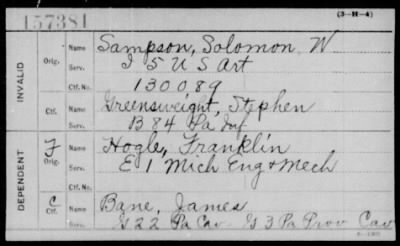 157381
(3-H-4)
INVALID
Orig.
Name Sampson, Solomon W
Serv. I 5 U S Art
Ctf. No. 130089
Ctf.
Name Greensweight, Stephen
Serv. B 84 Pa Inf
DEPENDENT
F
Orig.
Name Hogle, Franklin
Serv. E 1 Mich Eng & Mech
Ctf. No.
C
Ctf.
Name Bane, James
Serv. G 22 Pa Cav G 3 Pa Prov Cav